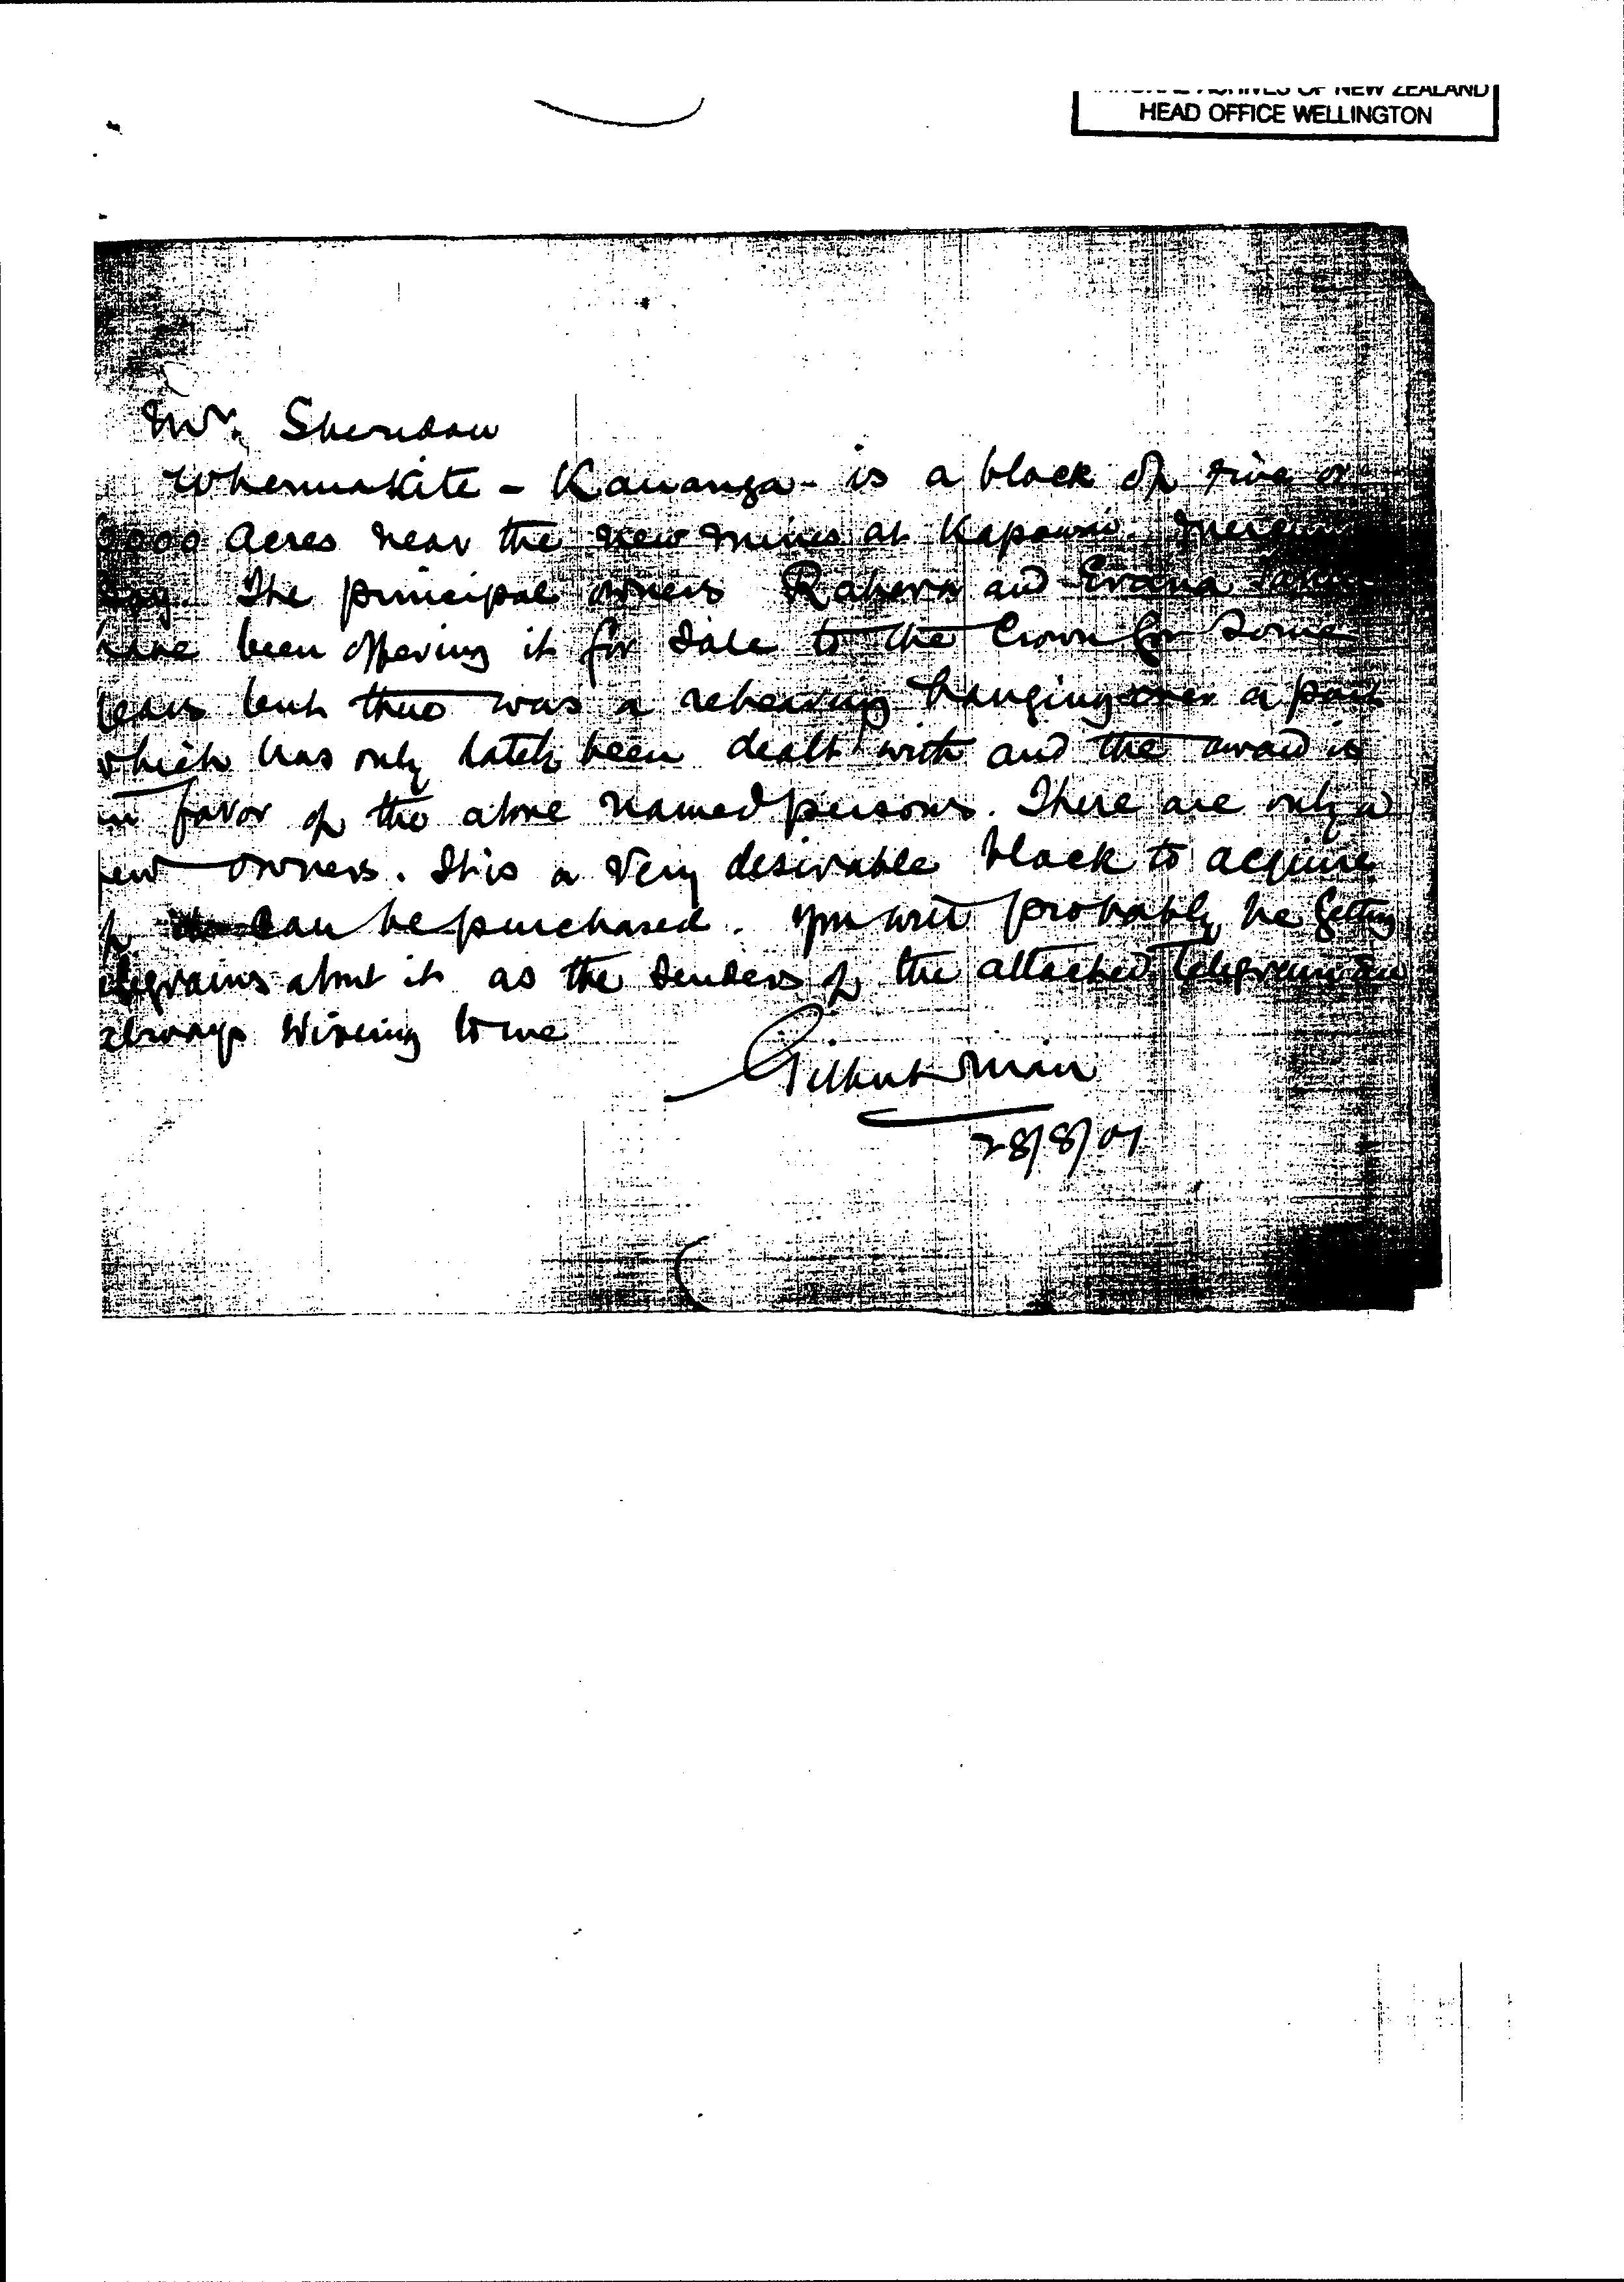 ARCHIVES OF NEW ZEALAND
HEAD OFFICE WELLINGTON
Mr. Sheridan
Whenuakite - Kauanga - is a block of five or
acres near the new mines at Kapowai. Mercury
Bay. The principal owners Rahera and Erana
have been offering it for sale to the Crown for some
years but there was a rehearing hanging over a part
which has only lately been dealt with and the award is
in favor of the above named persons. There are only a
few owners. It is a very desirable block to acquire
if it can be purchased. You will probably be getting
telegrams about it as the senders of the attached telegram are
always wiring to me
Gilbert Mair
28/8/01